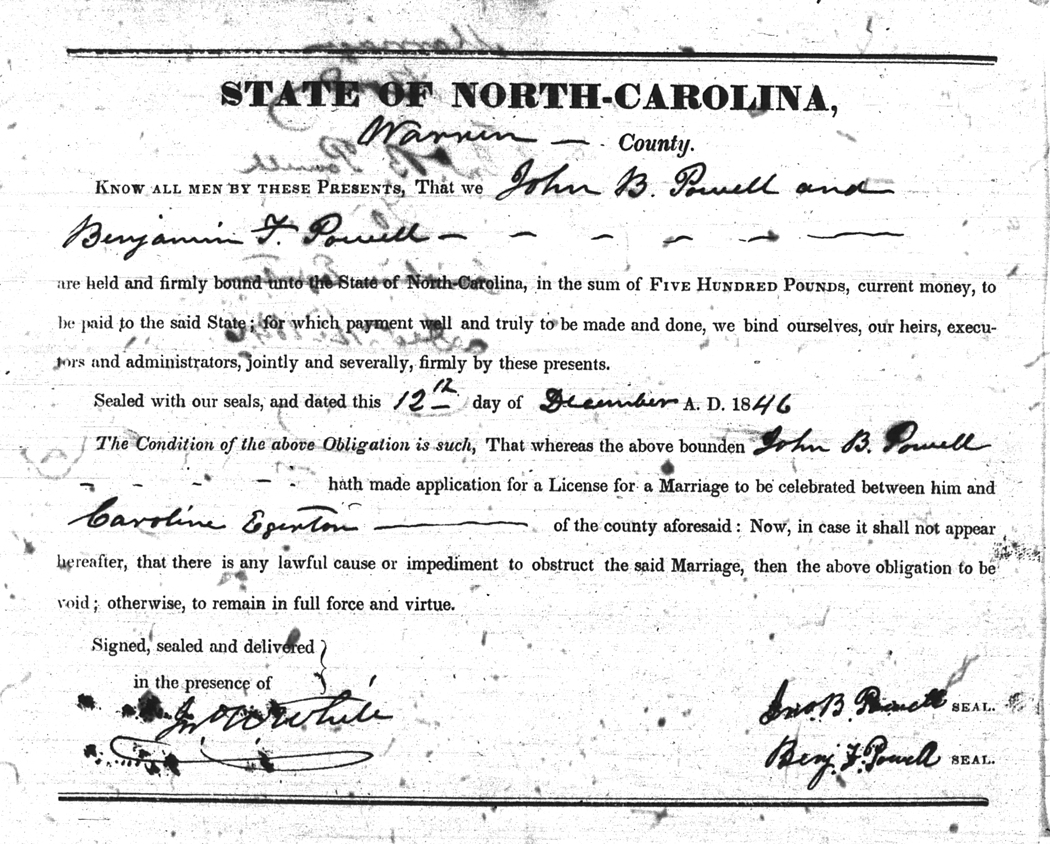 STATE OF NORTH-CAROLINA,
Warren — County.
KNOW ALL MEN BY THESE PRESENTS, That we John B. Powell and
Benjamin F. Powell — — — — — —
are held and firmly bound unto the State of North-Carolina, in the sum of FIVE HUNDRED POUNDS, current money, to
be paid to the said State; for which payment well and truly to be made and done, we bind ourselves, our heirs, execu-
tors and administrators, jointly and severally, firmly by these presents.
Sealed with our seals, and dated this 12th day of December A. D. 1846
The Condition of the above Obligation is such, That whereas the above bounden John B. Powell
- - - - - hath made application for a License for a Marriage to be celebrated between him and
Caroline Egerton — of the county aforesaid: Now, in case it shall not appear
hereafter, that there is any lawful cause or impediment to obstruct the said Marriage, then the above obligation to be
void; otherwise, to remain in full force and virtue.
Signed, sealed and delivered }
in the presence of
White
Jno. B. Powell SEAL.
Benj. F. Powell SEAL.